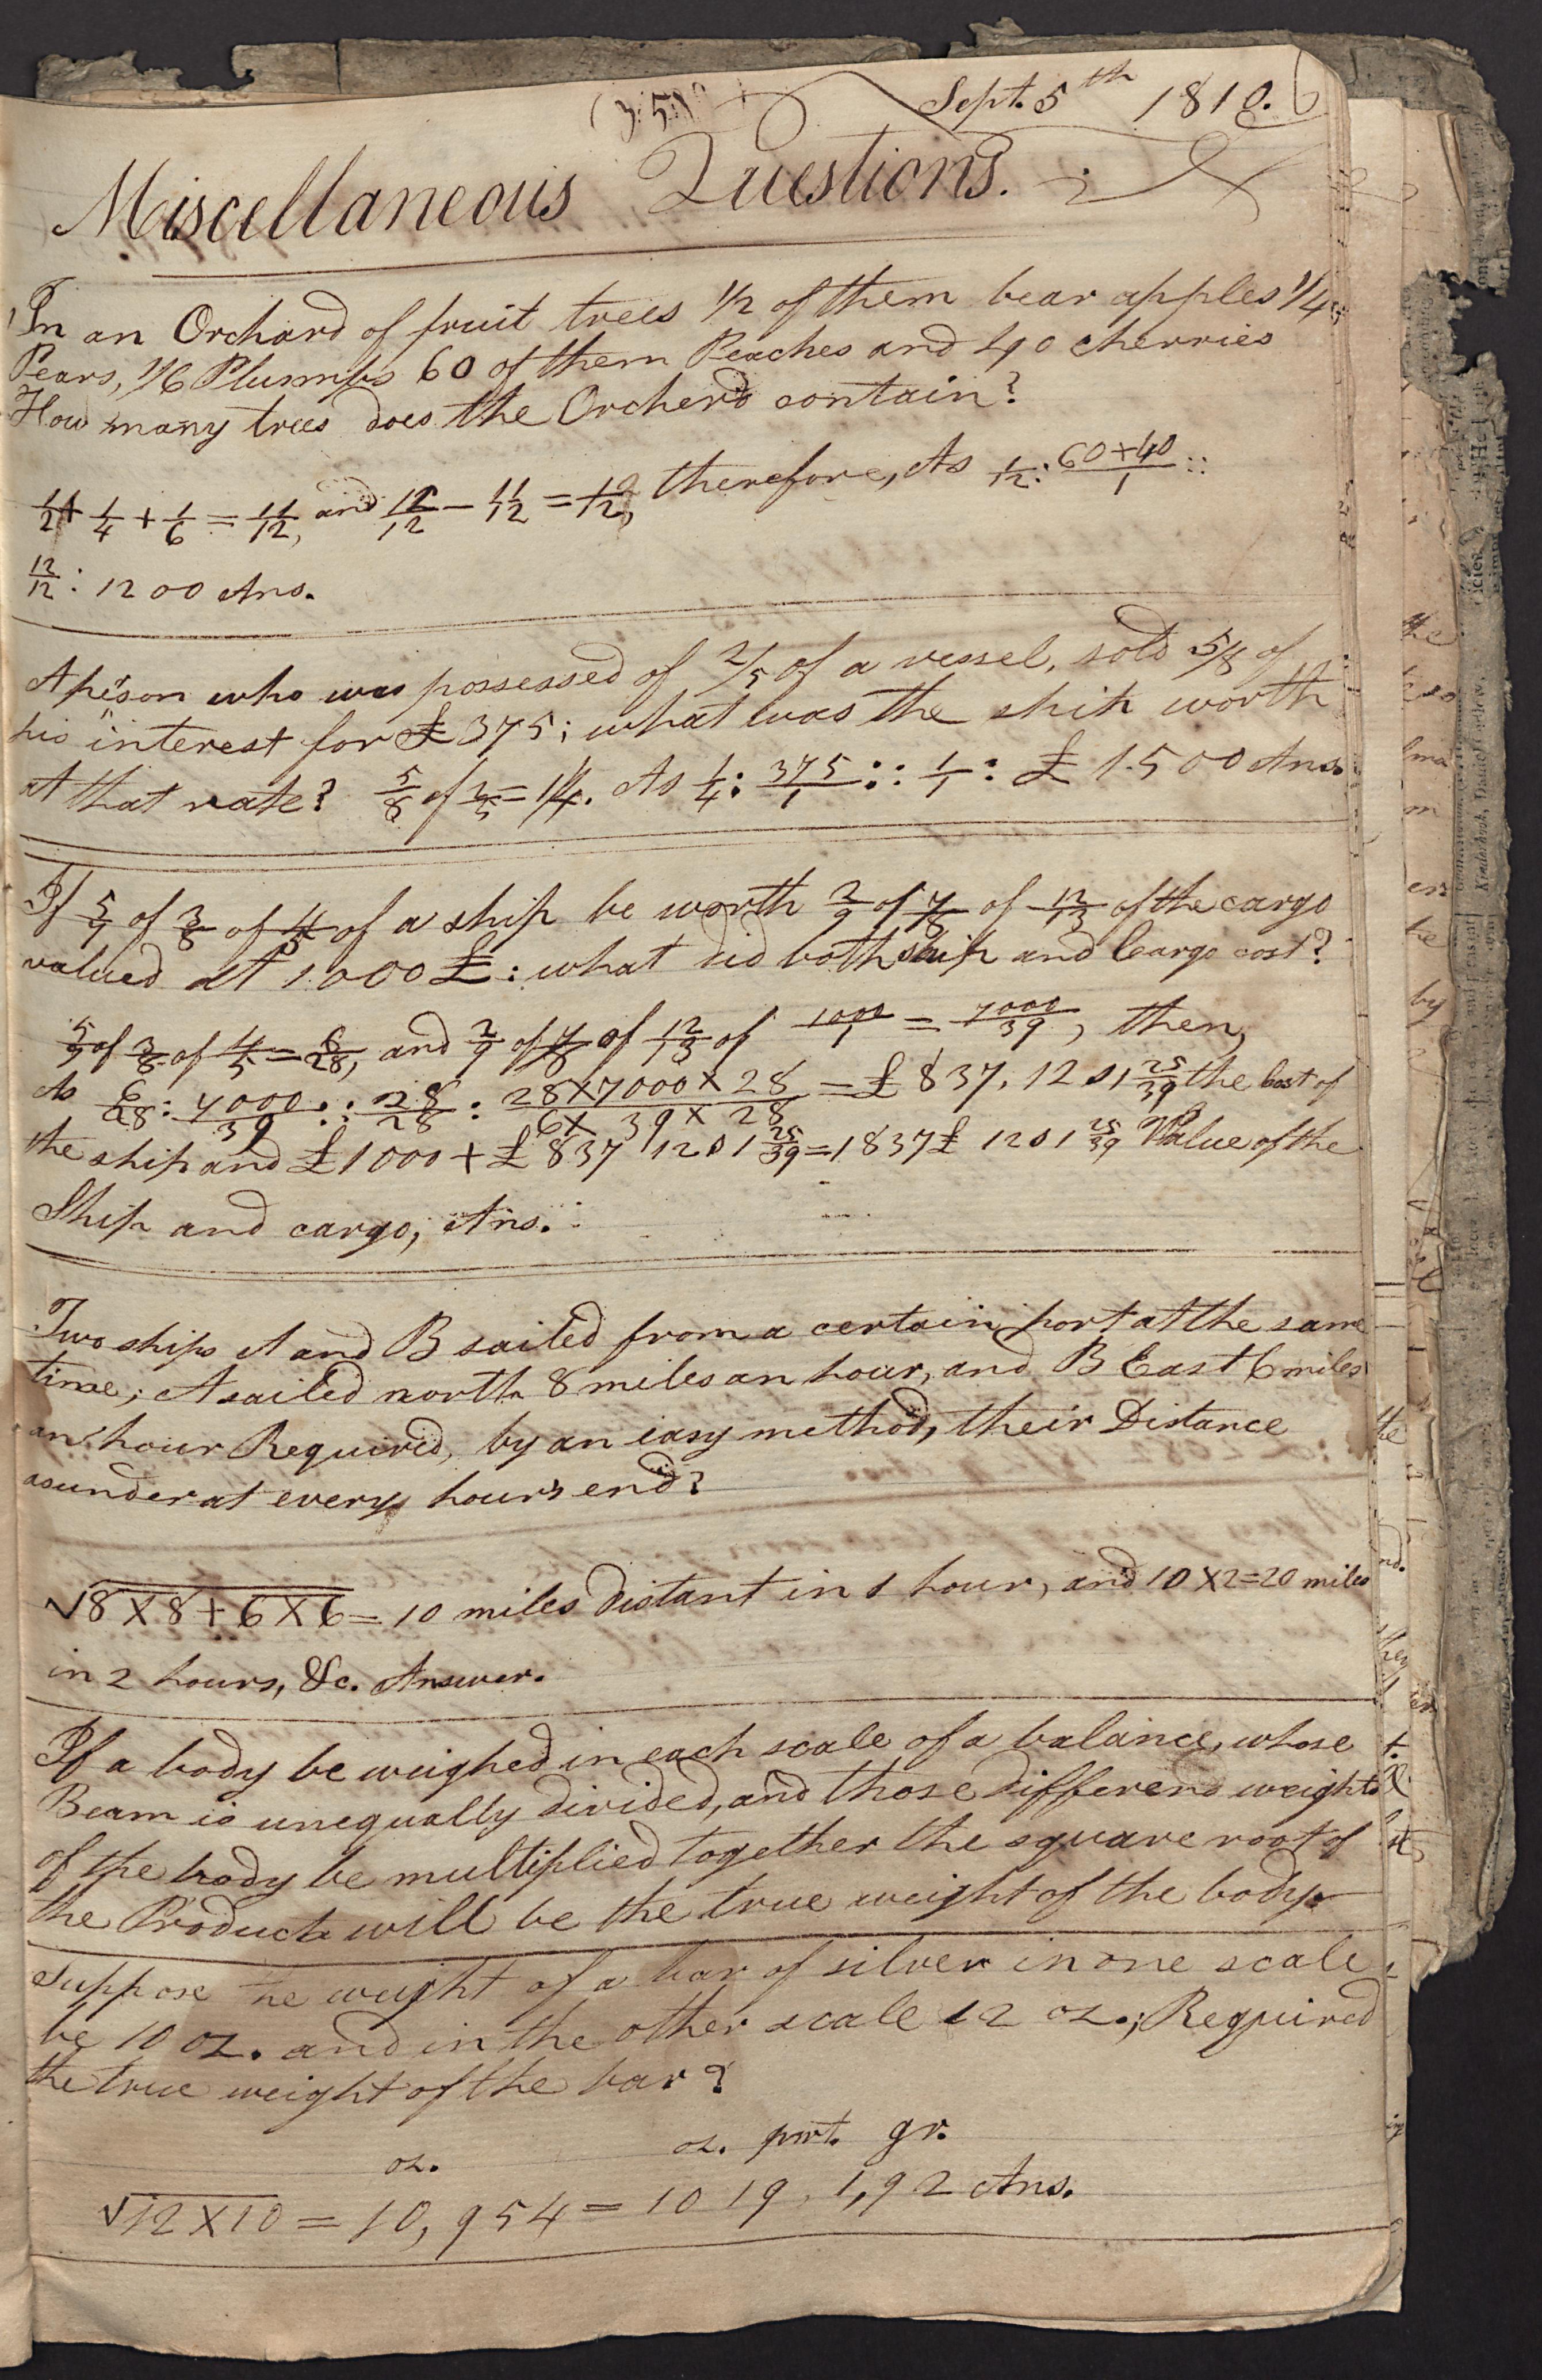 Sept. 5th 1810.
Miscellaneous Questions.
In an Orchard of fruit trees 1/2 of them bear apples 1/4
Pears, 1/6 Plumbs 60 of them Peaches and 40 cherries
How many trees does the Orcherd contain?
1/2 + 1/4 + 1/6 = 11/12, and 12/12 - 11/12 = 1/12, therefore, As 1/12 : 60+40/1 ::
12/12 : 1200 Ans.
A person who was possessed of 2/5 of a vessel, sold 5/8 of
his interest for £375; what was the ship worth
at that rate? 5/8 of 2/5 = 1/4. As 1/4 : 375/1 :: 1/1 : £ 1500 Ans.
If 5/7 of 3/8 of 4/5 of a ship be worth 2/9 of 7/8 of 12/13 of the cargo
valued at 1000£: what did both ship and Cargo cost?
5/7 of 3/8 of 4/5 = 6/28, and 2/9 of 7/8 of 12/13 of 1000/1 = 7000/39, then,
As 6/28 : 7000/39 :: 28/28 : 28×7000×28/6×39×28 = £837, 12 s 1 25/39 the Cost of
the ship and £1000 + £837 12 s 1 25/39 = 1837£ 12 s 1 25/39 Value of the
Ship and cargo; Ans.
Two ships A and B sailed from a certain port at the same
time; A sailed north 8 miles an hour, and B East 6 miles
an hour Required, by an easy method, their Distance
asunder at every hour's end?
√8×8+6×6 = 10 miles distant in 1 hour, and 10×2=20 miles
in 2 hours, &c. Answer.
If a body be weighed in each scale of a balance, whose
Beam is unequally divided, and those differend weights
of the body be multiplied together the square root of
the Product will be the true weight of the body.
Suppose the weight of a bar of silver in one scale
be 10 oz. and in the other scale 12 oz.; Required
the true weight of the bar?
oz. oz. pwt. gr.
√12×10 = 10,954 = 10 19, 1,92 Ans.